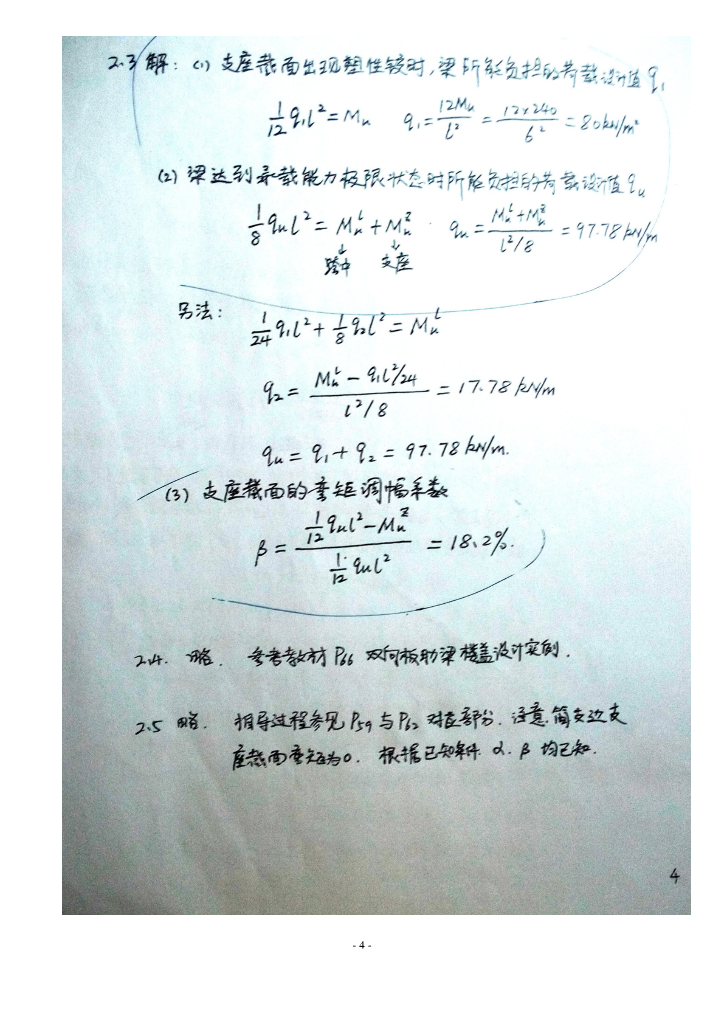 2.3 解: (1) 支座截面出现塑性铰时,梁所能负担的荷载设计值 q₁
1/12 q₁l² = Mu  q₁ = 12Mu/l² = 12×240/6² = 80kN/m²
(2) 梁达到承载能力极限状态时所能负担的荷载设计值 qu
1/8 qul² = Mu^L + Mu^Z  qu = (Mu^L + Mu^Z)/(l²/8) = 97.78 kN/m
跨中 支座
另法:
1/24 q₁l² + 1/8 q₂l² = Mu^L
q₂ = (Mu^L − q₁l²/24)/(l²/8) = 17.78 kN/m
qu = q₁ + q₂ = 97.78 kN/m.
(3) 支座截面的弯矩调幅系数
β = (1/12 qul² − Mu^Z)/(1/12 qul²) = 18.2%.
2.4. 略. 参考教材 P66 双向板肋梁楼盖设计实例.
2.5 略. 指导过程参见 P59 与 P62 对应部分. 注意,简支边支
座截面弯矩为0. 根据已知条件. α. β 均已知.
4
- 4 -